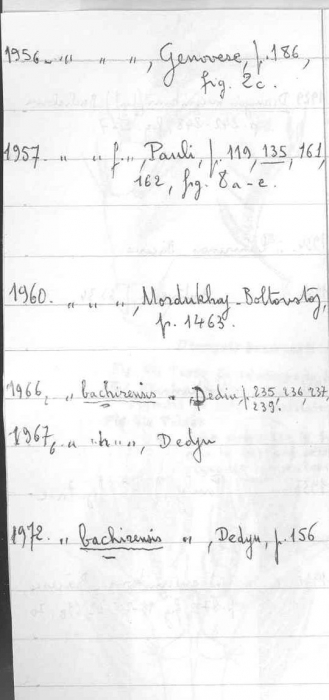 1956. " " ", Genovese, p. 186,
fig. 2c.
1957. " " f. ", Pauli, p. 119, 135, 161,
162, fig. 8 a-e.
1960. " " ", Mordukhaj-Boltovskoj,
p. 1463.
1966, " bachirensis ", Dediu, p. 235, 236, 237,
239.
1967, " " ", Dedyu
1972. " bachirensis ", Dedyu, p. 156